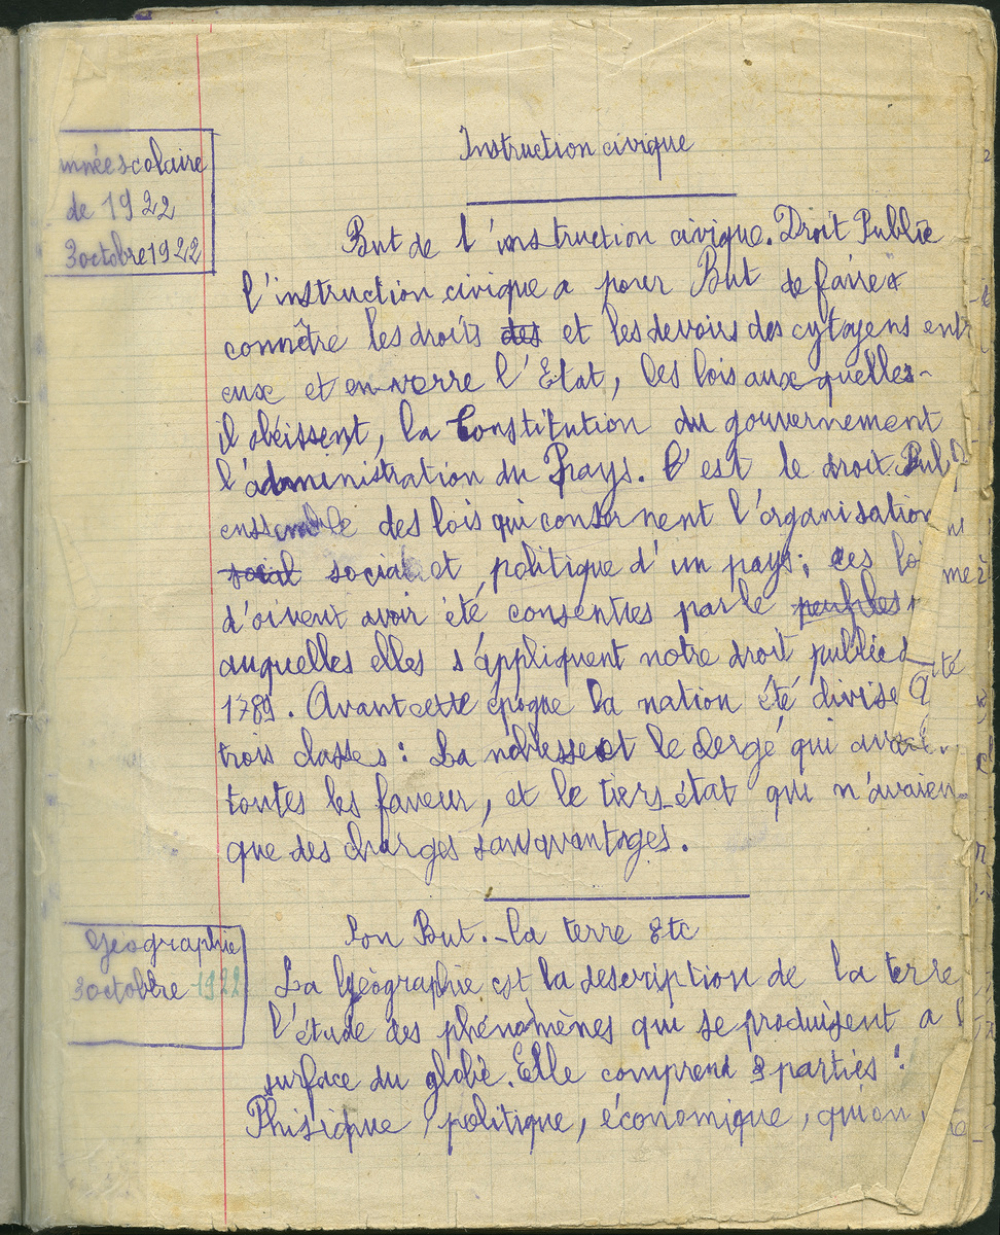 Instruction civique
année scolaire
de 1922
3 octobre 1922
But de l'instruction civique. Droit Public
l'instruction civique a pour But de faire
connêtre les droits des et les devoirs des cytoyens entr
eux et en verre l'Etat, les lois aux quelles-
il obéissent, la Constitution du gouvernement
l'administration du Pays. C'est le droit Publ
ensemble des lois qui consernent l'organisation
social social et politique d'un pays; ces loi
d'oivent avoir été consenties par le peuples
auquelles elles s'appliquent notre droit public
1789. Avant cette époque la nation été divise
trois classes: La noblesse et le clergé qui avai
toutes les faveur, et le tiers-état qui n'avaien
que des charges sans avantages.
Géographie
3 octobre 1922
Son But.-La terre Etc
La Géographie est la description de la terre
l'étude des phénomènes qui se produisent a l
surface du globe. Elle comprend 3 parties:
Phisique, politique, économique, qui on